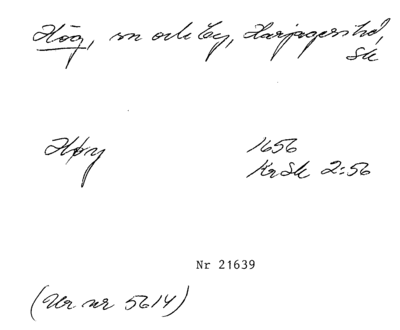 Hög, sn och by, Harjagers hd,
Sk
Høy 1656
KrSk 2:56
Nr 21639
(Ur nr 5614)